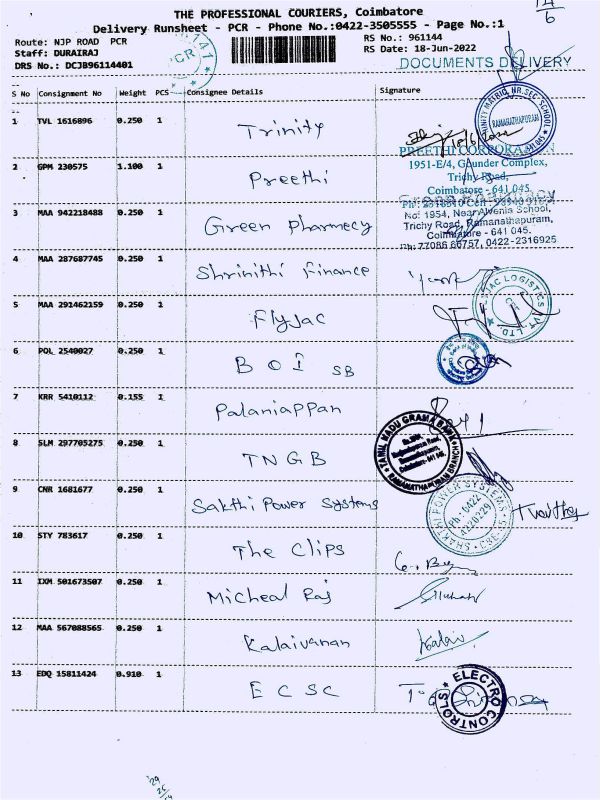 THE PROFESSIONAL COURIERS, Coimbatore
Delivery Runsheet - PCR - Phone No.:0422-3505555 - Page No.:1
Route: NJP ROAD PCR RS No.: 961144
Staff: DURAIRAJ RS Date: 18-Jun-2022
DRS No.: DCJB96114401 DOCUMENTS DELIVERY
S No Consignment No Weight PCS Consignee Details Signature
1 TVL 1616896 0.250 1 Trinity
RAMANATHAPURAM
PREETHI CORPORATION
1951-E/4, Gounder Complex,
Trichy Road,
Coimbatore - 641 045.
2 GPM 230575 1.100 1 Preethi
Green Pharmacy
No: 1954, Near Alvenia School,
Trichy Road, Ramanathapuram,
Coimbatore - 641 045.
Ph: 77086 66757, 0422-2316925
3 MAA 942218488 0.250 1 Green Pharmecy
4 MAA 287687745 0.250 1 Shrinithi Finance
5 MAA 291462159 0.250 1 Flyjac
JAC LOGISTICS PVT. LTD
6 POL 2540027 0.250 1 BOI SB
7 KRR 5410112 0.155 1 Palaniappan
8 SLM 297705275 0.250 1 TNGB
TAMIL NADU GRAMA BANK
RAMANATHAPURAM BRANCH
9 CNR 1681677 0.250 1 Sakthi Power Systems
SHAKTHI POWER SYSTEMS
Ph: 0422
4220229
CBE-45
10 STY 783617 0.250 1 The Clips
11 IXM 501673507 0.250 1 Micheal Raj
12 MAA 567088565 0.250 1 Kalaivanan
Kalai
13 EDQ 15811424 0.910 1 ECSC
ELECTRO CONTROLS